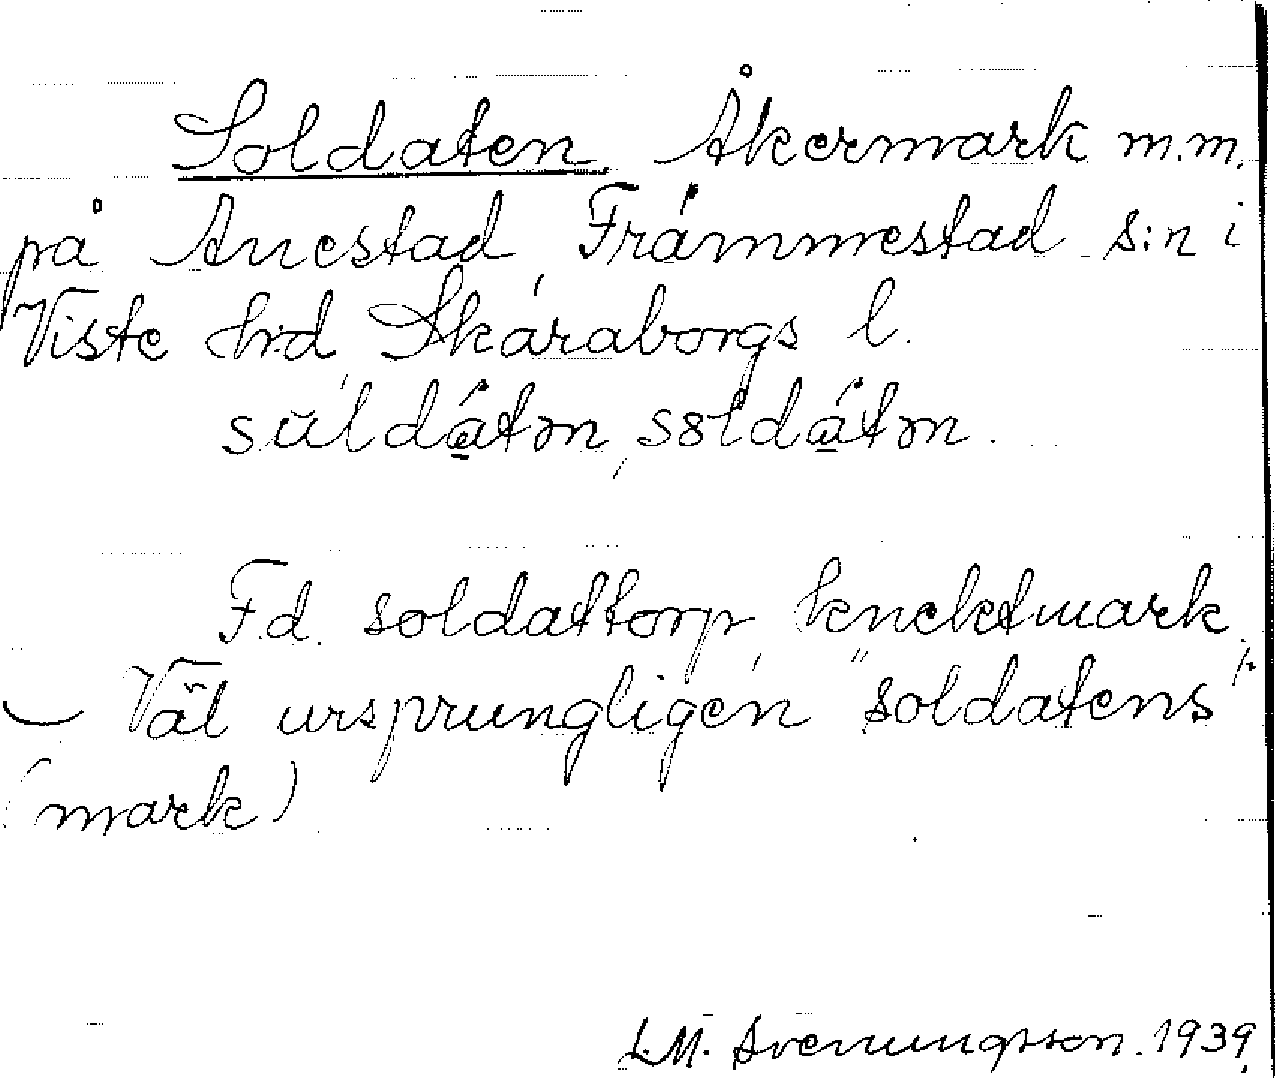 Soldaten. Åkermark m.m.
på Anestad, Främmestad s:n i
Viste hrd Skaraborgs l.
Fd. soldattorp, knektmark.
– Väl ursprungligen "soldatens"
(mark)
L.M. Svenungsson. 1939.